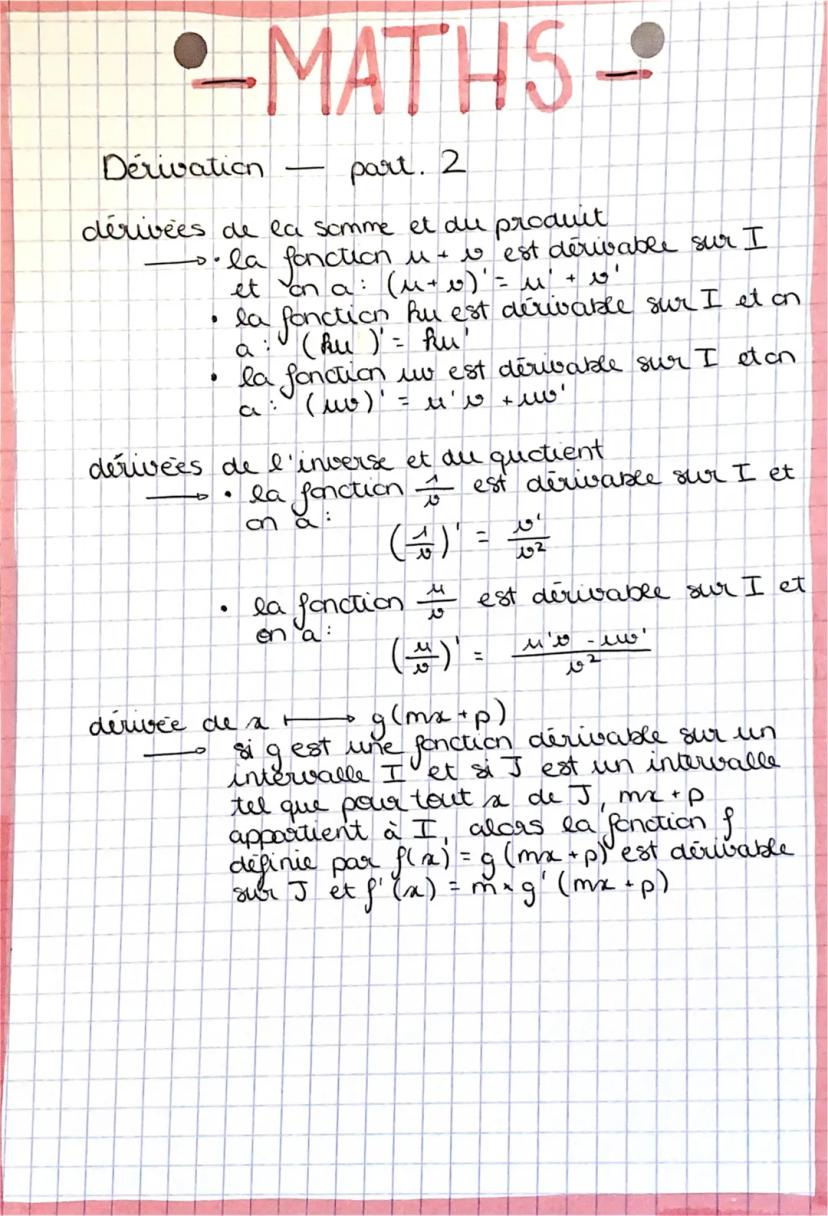 - MATHS -
Dérivation — part. 2
dérivées de la somme et du produit
→ • la fonction u + v est dérivable sur I
et on a : (u + v)' = u' + v'
• la fonction ku est dérivable sur I et on
a : (ku)' = ku'
• la fonction uv est dérivable sur I et on
a : (uv)' = u'v + uv'
dérivées de l'inverse et du quotient
→ • la fonction 1/v est dérivable sur I et
on a :
(1/v)' = v'/v²
• la fonction u/v est dérivable sur I et
on a :
(u/v)' = (u'v - uv')/v²
dérivée de x ⟼ g(mx + p)
→ si g est une fonction dérivable sur un
intervalle I et si J est un intervalle
tel que pour tout x de J, mx + p
appartient à I, alors la fonction f
définie par f(x) = g(mx + p) est dérivable
sur J et f'(x) = m × g'(mx + p)